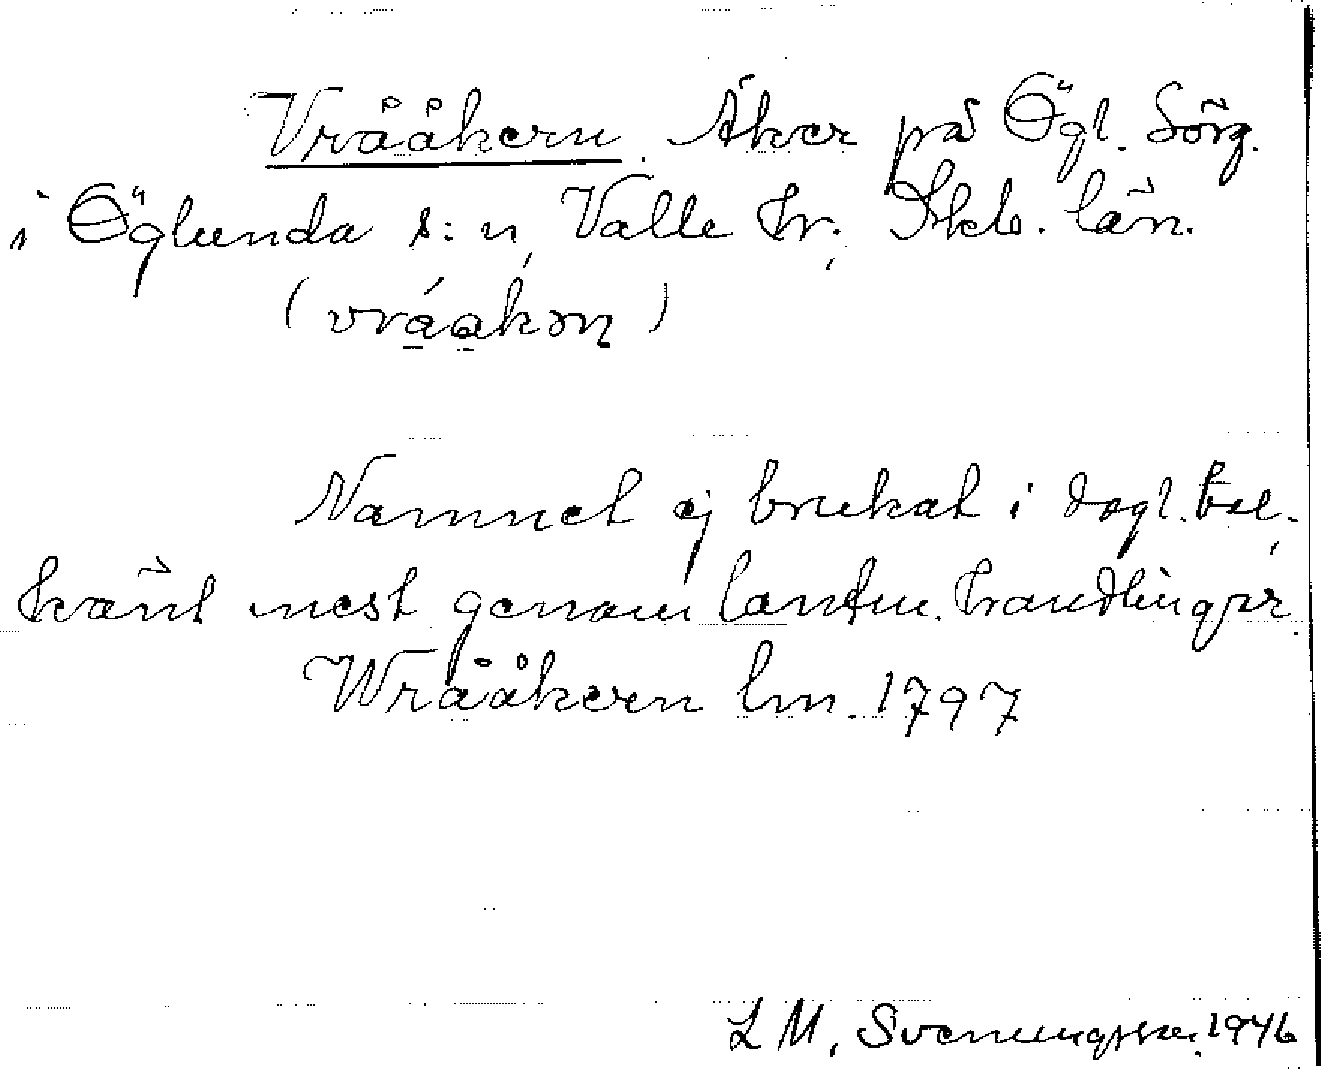 Vrååkern. Åker på Ögl. Sörg.
i Öglunda s:n, Valle hr; Skb. län.
(vråakən)
Namnet ej brukat i dagl. tal.
känt mest genom lantm. handlingar.
Wrååkern lm. 1797
L M, Svenungsson. 1946